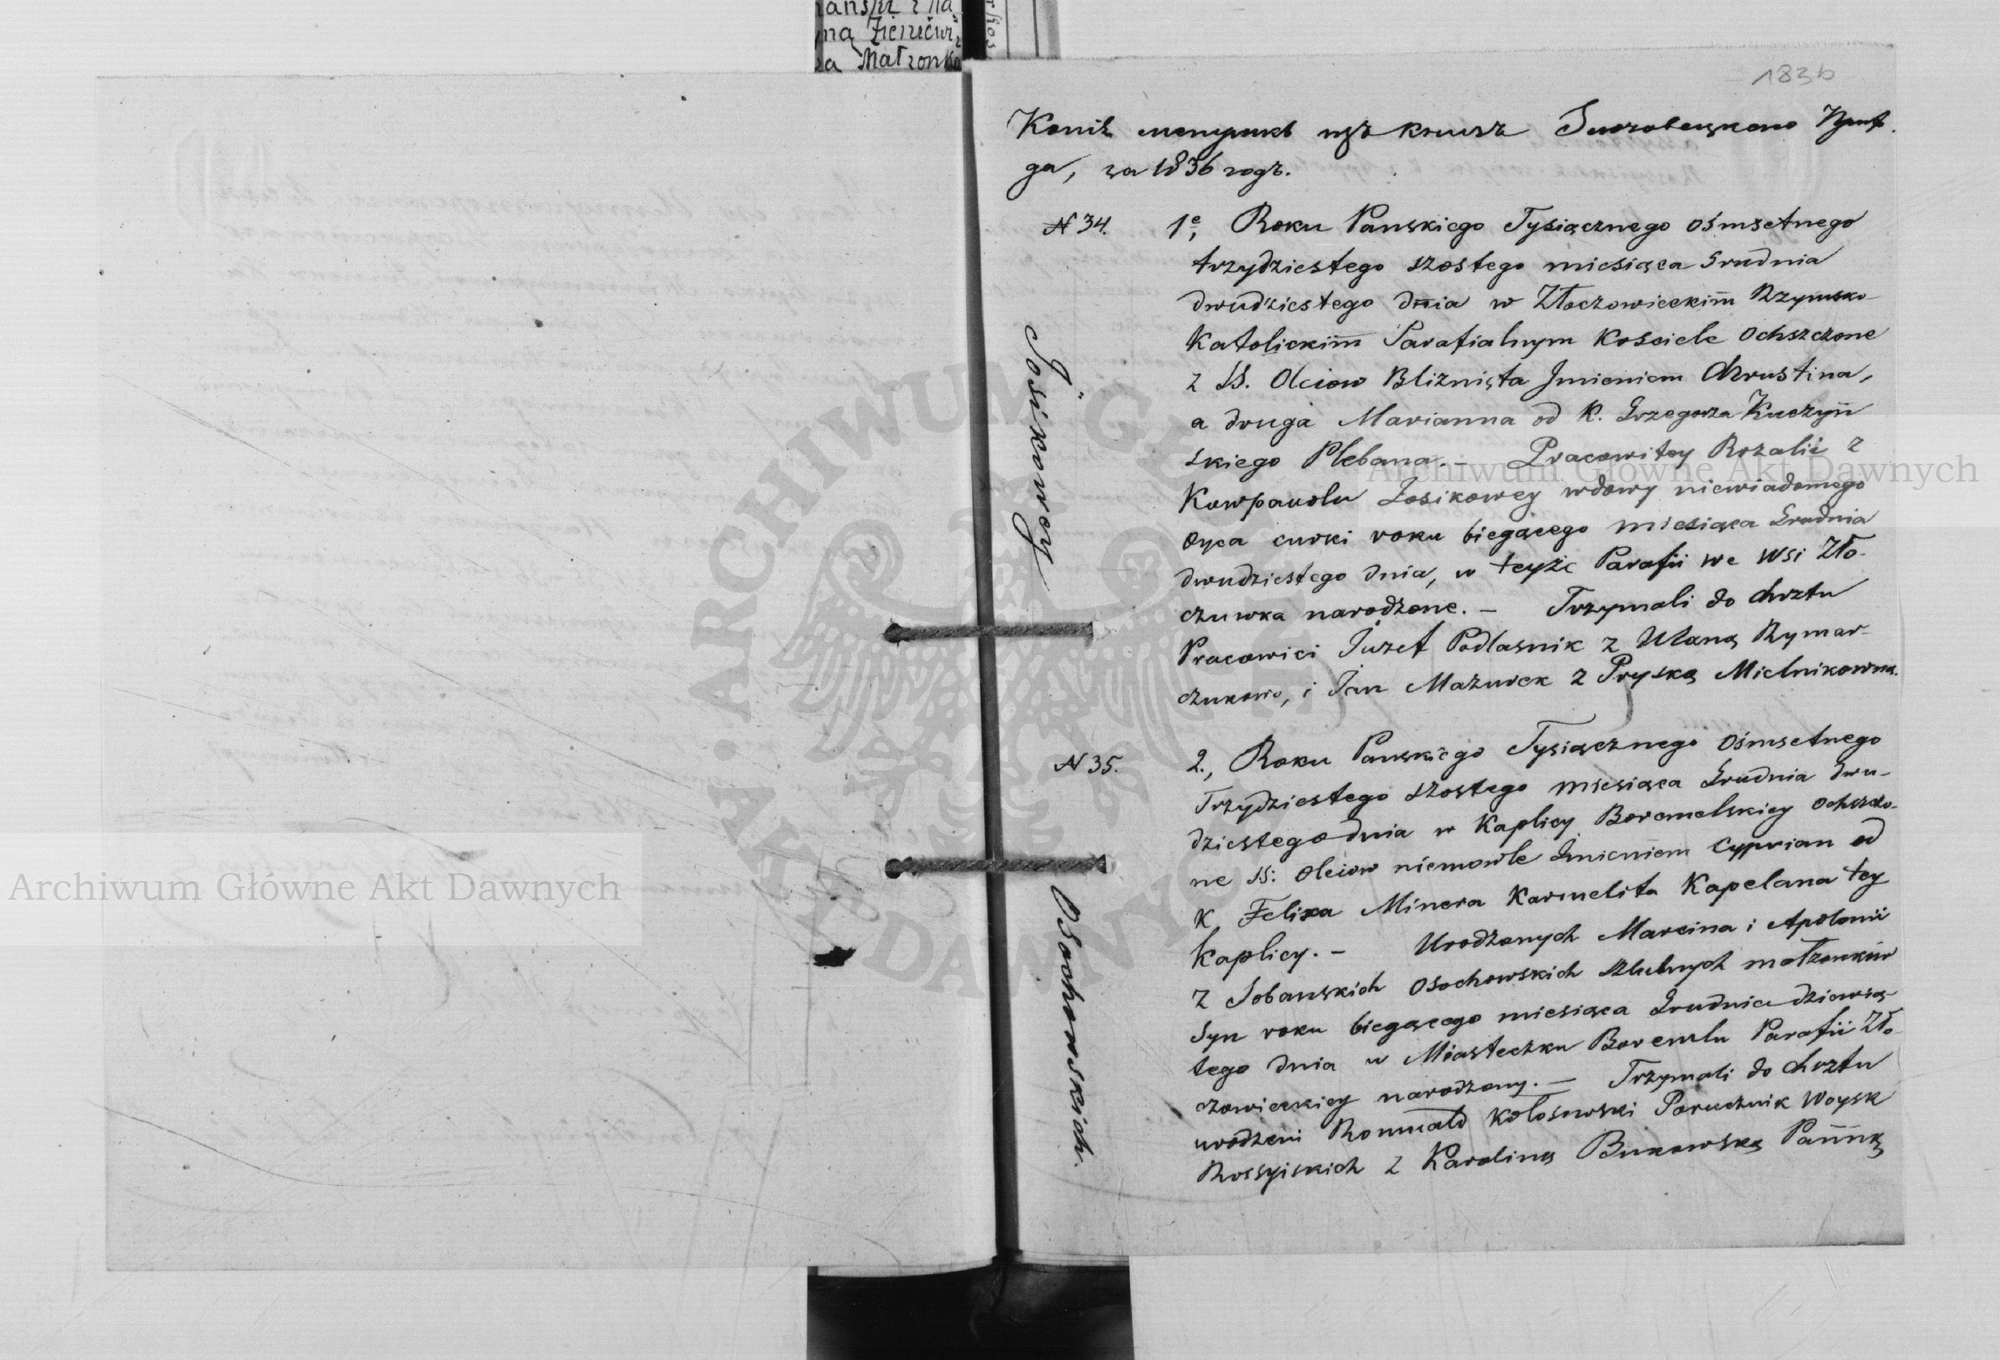 ańskı z Ka
na Zieniewi
a Małżonko
1836
за 1836 годъ.
N 34.
1e, Roku Panskiego Tysiącznego ośmsetnego
trzydziestego szostego miesiąca Grudnia
dwudziestego dnia w Złoczowieckim Rzymsko-
Katolickim Parafialnym Kosciele ochszczone
z SS. Oleiow Blizniąta Jmieniem Chrustina,
a druga Marianna od K. Grzegorza Kuczyń
skiego Plebana. – Pracowitey Rozalii z
Łosikowey wdowy niewiadomego
oyca curki roku biegącego miesiąca Grudnia
dwudziestego dnia, w teyże Parafii we wsi Zło-
czuwka narodzone. – Trzymali do chrztu
Pracowici Józef Podlasnik z Ulaną Rymar-
czukowo, i Jan Mazurek z Pryską Mielnikowną.
Josikowey
N 35.
2., Roku Panskiego Tysiącznego ośmsetnego
Trzydziestego szostego miesiąca Grudnia dwu-
dziestego dnia w Kaplicy Boremelskiey ochszczo-
ne SS: Oleiow niemowle Jmieniem Cyprian od
K. Felixa Minera Karmelita Kapelana tey
Kaplicy. – Urodzonych Marcina i Apolonii
z Sobanskich Osochowskich szlubnych małżonków
Syn roku biegącego miesiąca Grudnia dziewią-
tego dnia w Miasteczku Boremlu Parafii Zło-
czowieckiey narodzony. – Trzymali do chrztu
urodzeni Romuald Kołosowski Porucznik Woysk
Rossyiskich z Karoliną Bukowską Panną
Osochowskich.
Archiwum Główne Akt Dawnych
Archiwum Główne Akt Dawnych
ARCHIWUM GŁÓWNE AKT DAWNYCH